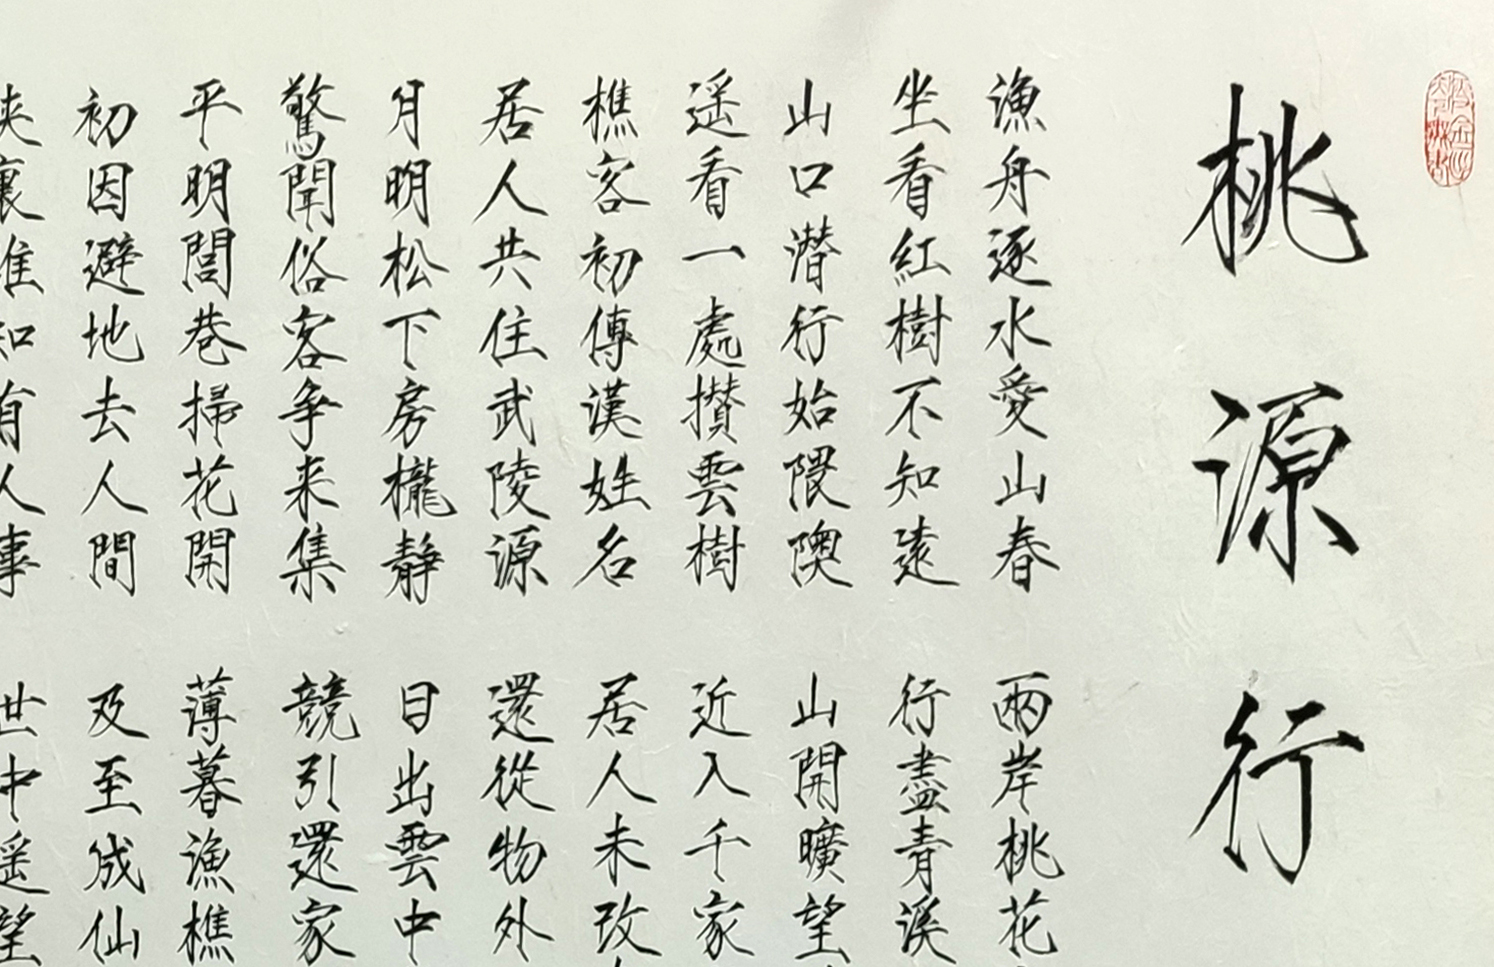 桃源行
漁舟逐水愛山春 兩岸桃花
坐看紅樹不知遠 行盡青溪
山口潛行始隈隩 山開曠望
遥看一處攢雲樹 近入千家
樵客初傳漢姓名 居人未改
居人共住武陵源 還從物外
月明松下房櫳静 日出雲中
驚聞俗客争来集 競引還家
平明閭巷掃花開 薄暮漁樵
初因避地去人間 及至成仙
峡裏誰知有人事 世中遥望